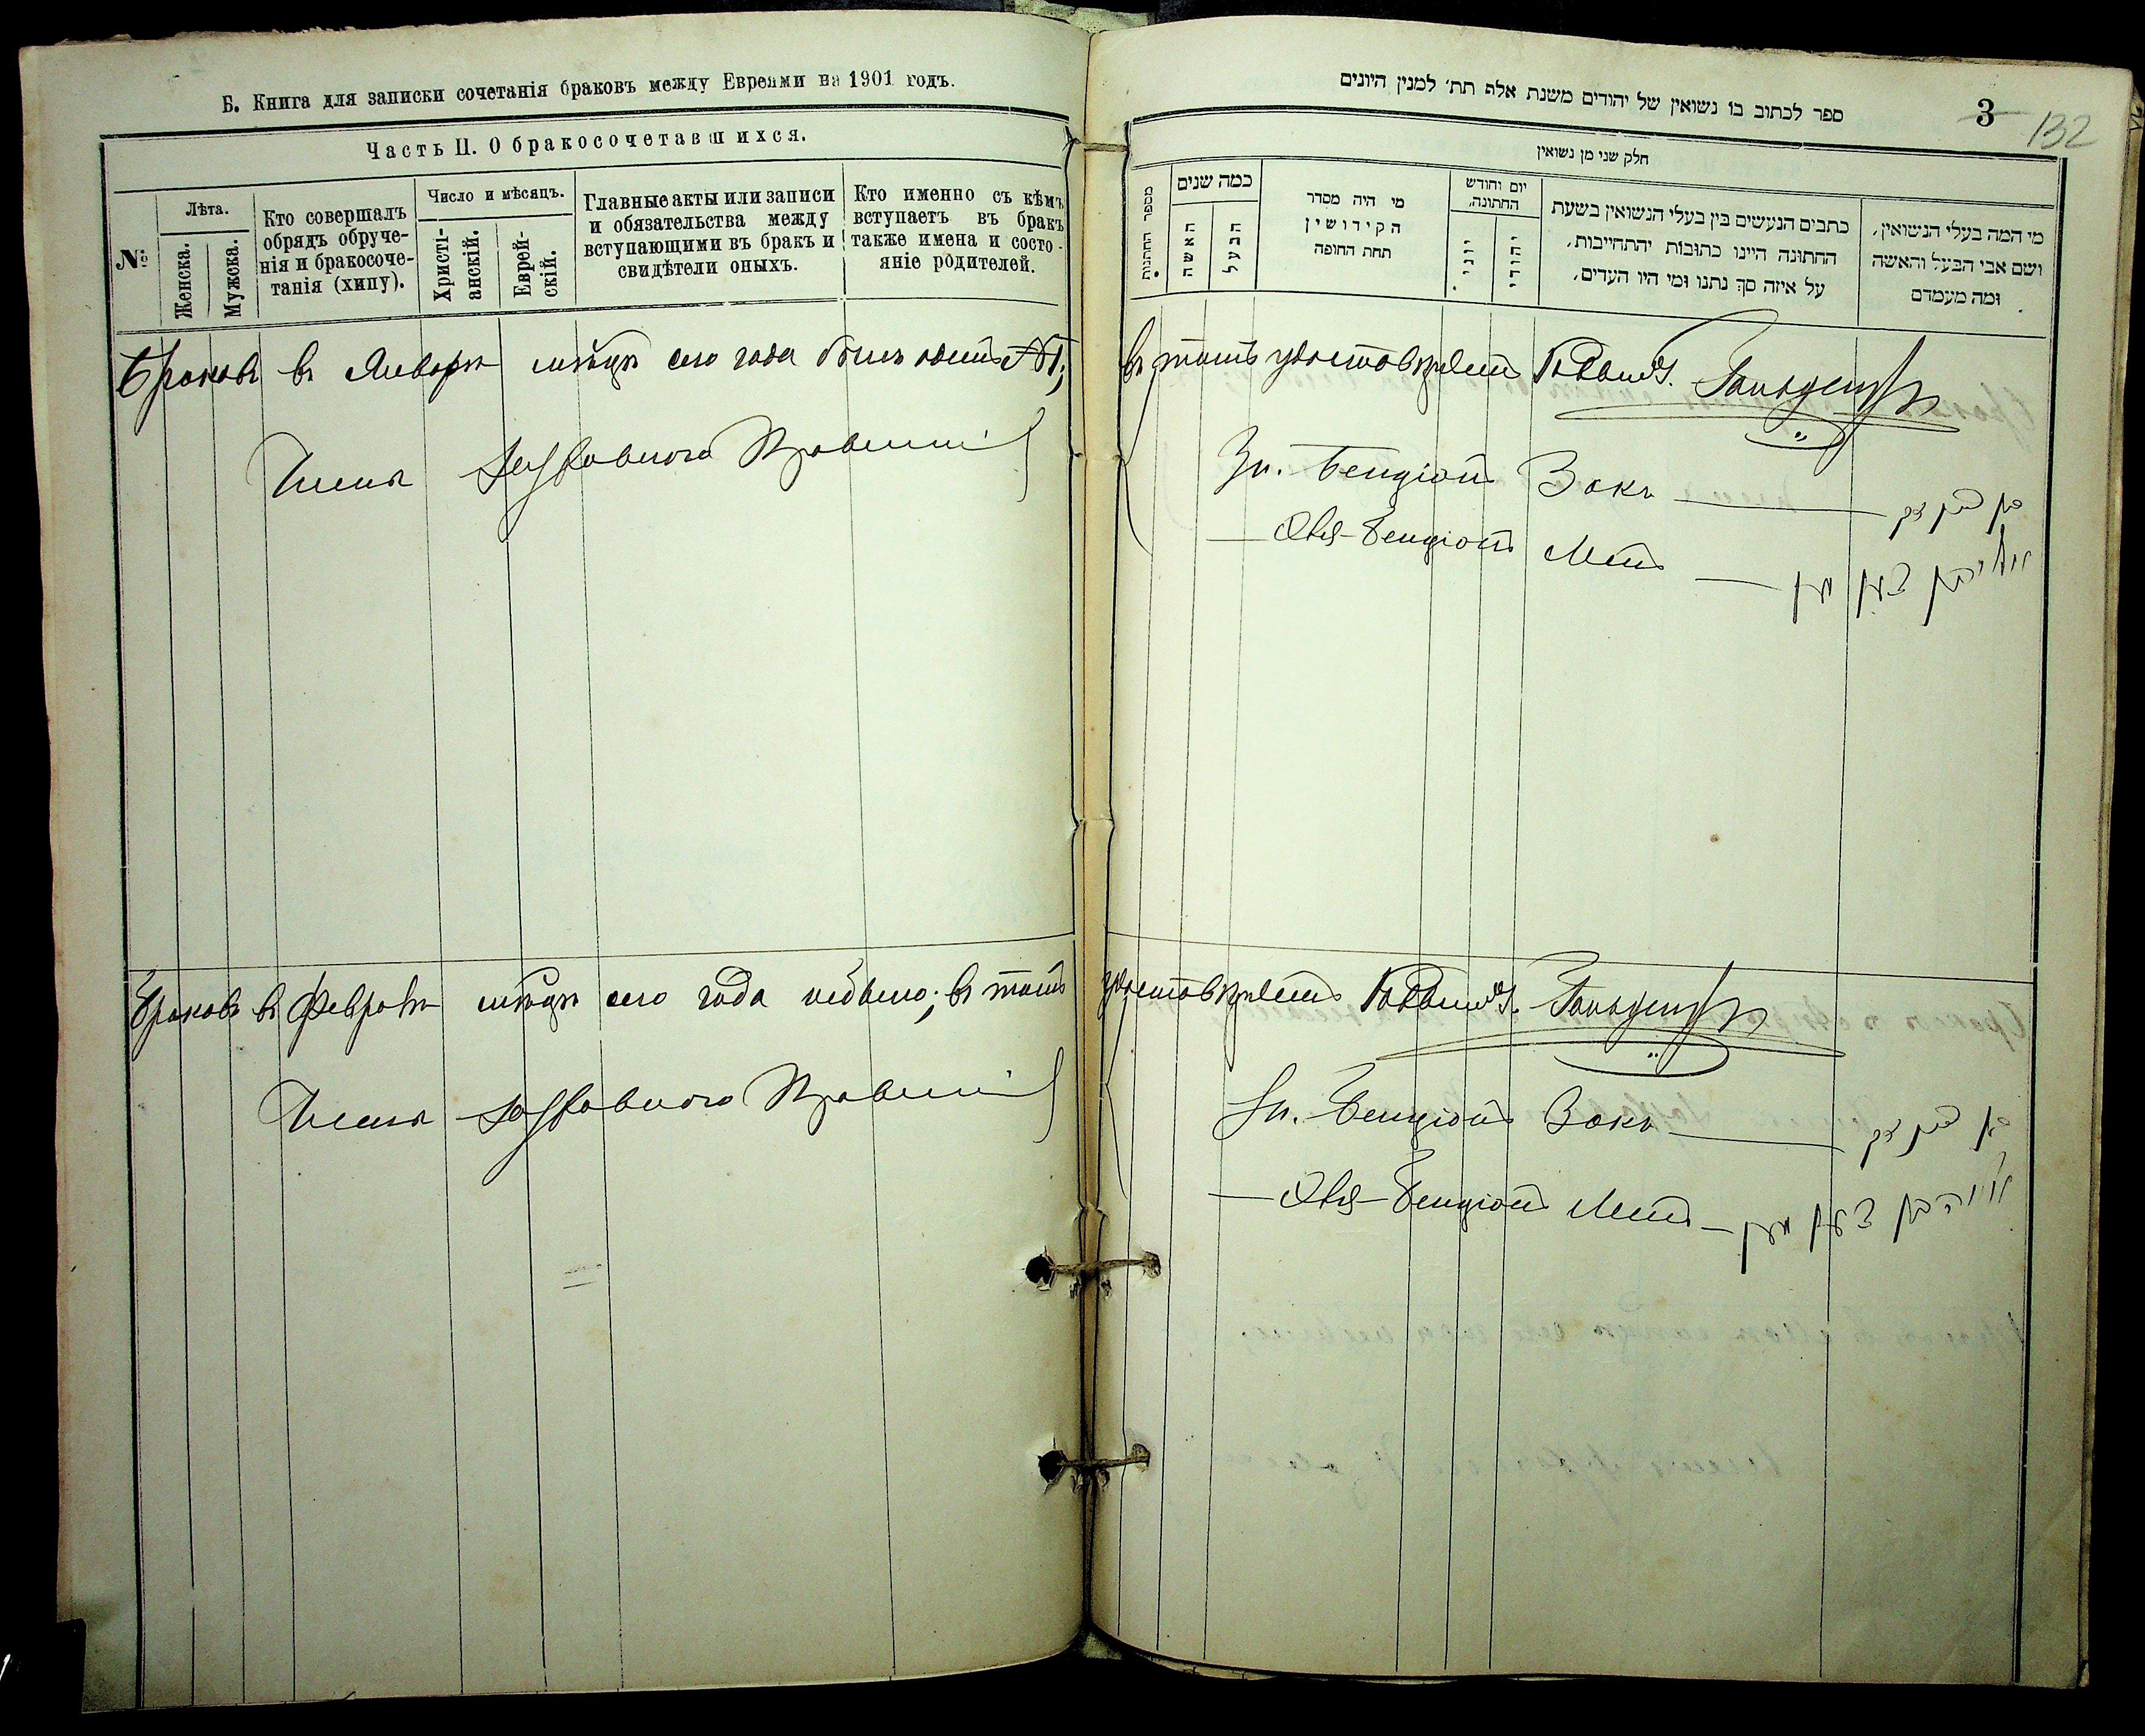 Б. Книга для записки сочетанія браковъ между Евреями на 1901 годъ.
Часть II. О бракосочетавшихся.
№
Лѣта.
Женска.
Мужска.
Кто совершалъ
обрядъ обруче-
нія и бракосоче-
танія (хипу).
Число и мѣсяцъ.
Христі-
анскій.
Еврей-
скій.
Главные акты или записи
и обязательства между
вступающими въ бракъ и
свидѣтели оныхъ.
Кто именно съ кѣмъ
вступаетъ въ бракъ
также имена и состо-
яніе родителей.
Браковъ въ Январѣ мѣсяцѣ сего года былъ одинъ
Члены Духовнаго Правленія
Браковъ въ Февралѣ мѣсяцѣ сего года небыло; въ томъ
Члены Духовнаго Правленія
ספר לכתוב בו נשואין של יהודים משנת אלף תת׳ למנין היונים
3
132
חלק שני מן נשואין
מספר החתונות
כמה שנים
האשה
הבעל
מי היה מסדר
הקידושין
תחת החופה
יום וחודש
החתונה.
יוני
יהודי
כתבים הנעשים בין בעלי הנשואין בשעת
החתונה היינו כתובות יהתחייבות,
על איזה סך נתנו ומי היו העדים,
מי המה בעלי הנשואין,
ושם אבי הבעל והאשה
ומה מעמדם
въ томъ удостовѣряетъ
Зп. Бенціонъ Закъ
בן ציון זק
Овсѣ-Бенціонъ Менъ
удостовѣряетъ
Зп. Бенціонъ Закъ
בן ציון זק
Бенціонъ Менъ